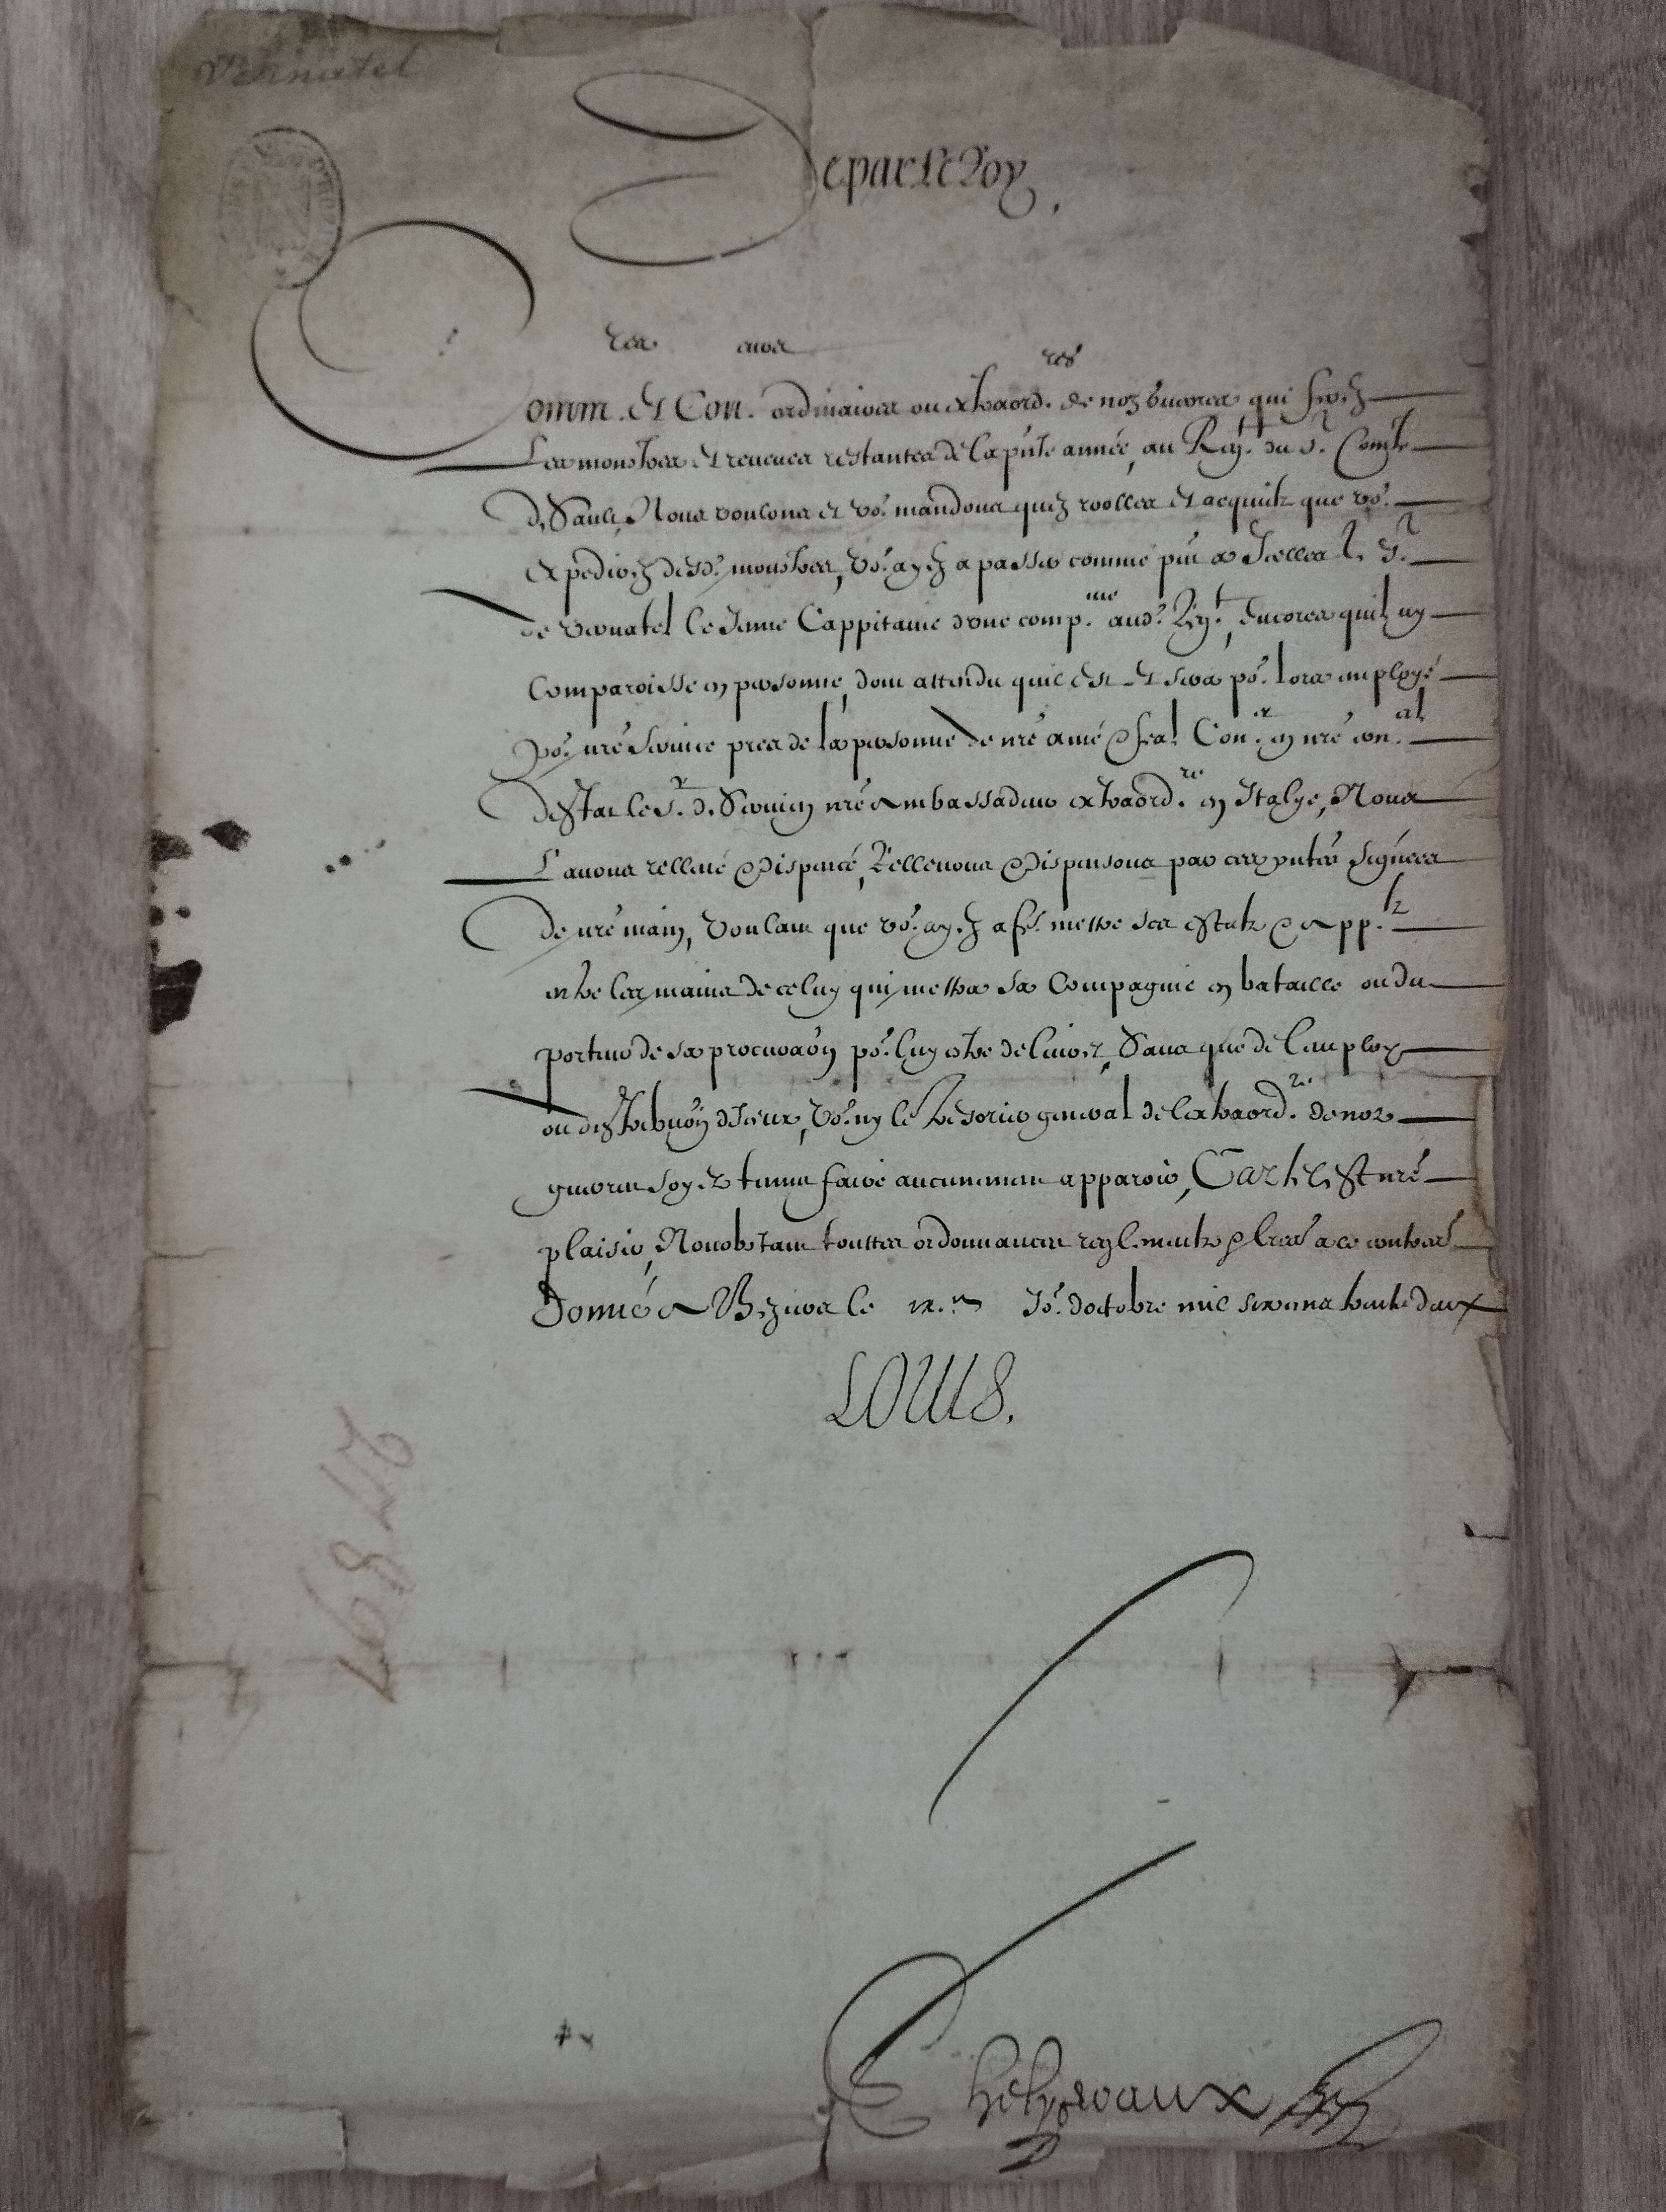 Vernatel
De par Le Roy,
Comm.res Et Con.rolleurs ordinaires ou extraord.res de noz guerres qui ferez
Les monstres Et reveues restantes de la pnte année, au Reg.t du S.r Comte
de Sault, Nous voulons et vo.s mandons quez roolles Et acquictz que vo.s
expedierez desd. monstres, vo.s ayez a passer comme pnt a Icelles le S.r
de vernatel le Jeune Cappitaine dune comp.nie aud. Reg.t, Encores quil ny
Comparoisse en personne, dont attendu quil est Et sera po.r lors employé
po.r nre service pres de la personne de nre amé & feal Con.er en nre con.al
destat le S.r de Servien nre Ambassadeur extraord.re en Italye, Nous
L'avons rellevé & dispencé, Rellevons & dispensons par ces pntes signees
De nre main, voulant que vo.s ayez a fe. mettre ses estatz & app.tz
entre les mains de celuy qui mettra sa Compagnie en bataille ou du
porteur de sa procuraon po.r luy estre delivrez, Sans que de lemploy
ou distribuon dIceux, vo.s ny le tresorier general de lextraord.re de noz
guerres soyez tenuz faire aucunement apparoir, Car tel est nre
plaisir, Nonobstant touttes ordonnances reglementz & lres a ce contraires
Donné a Beziers le IX.e Jo.r doctobre mil six cens trente deux
LOUIS.